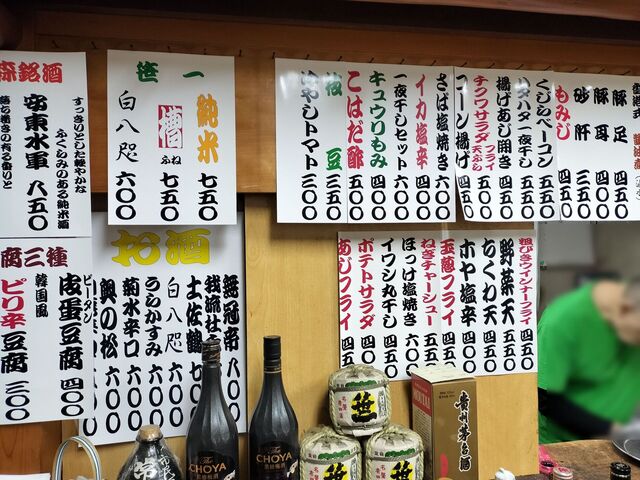 冷やしトマト 三〇〇
枝豆 三五〇
こはだ酢 四五〇
キュウリもみ 四〇〇
一夜干しセット 六〇〇
イカ塩辛 四五〇
さば塩焼き 六五〇
コーン揚げ 四五〇
チクワサラダ フライ 天ぷら 五〇〇
揚げあじ開き 四五〇
ハタハタ一夜干し 五五〇
くじらベーコン 五五〇
もみじ 五五〇
砂肝 三五〇
豚耳 五〇〇
豚足 六〇〇
笹一
純米 七五〇
槽 ふね 七五〇
白八咫 六〇〇
銘酒
すっきりとした軽やかな
ふくらみのある純米酒
安東水軍 八五〇
落ち着きの有る香いと
野菜天 五五〇
粗びきウインナーフライ 四五〇
ちくわ天 四五〇
ホヤ塩辛 五〇〇
玉葱フライ 四五〇
ねぎチャーシュー 五五〇
ほっけ塩焼き 六〇〇
イワシ丸干し 四五〇
ポテトサラダ 四〇〇
あじフライ 四五〇
お酒
無冠帝 八〇〇
我流
土佐鶴
白八咫
うらかすみ
菊水辛口 六〇〇
奥の松
腐三種
ピータン
皮蛋豆腐 四〇〇
韓国風
ピリ辛豆腐 三〇〇
The CHOYA
The CHOYA
笹一
MOUTAI
貴州茅台酒